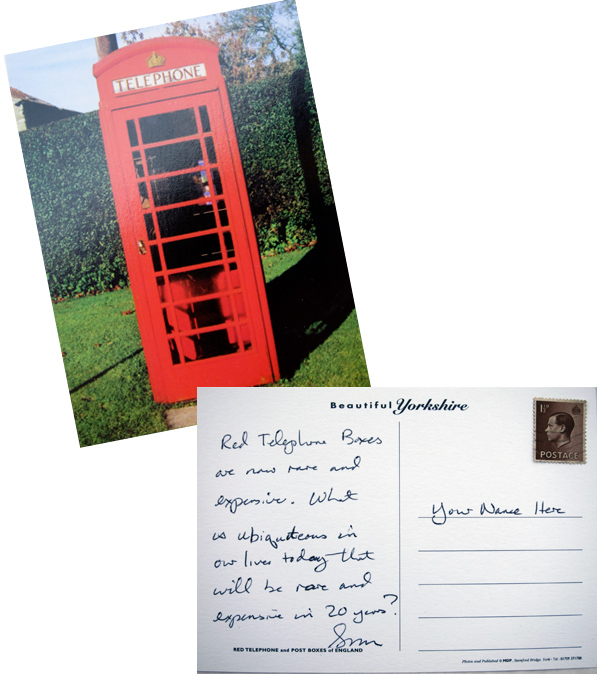 TELEPHONE
Beautiful Yorkshire
1½D
POSTAGE
Red Telephone Boxes
are now rare and
expensive. What
is ubiquiteous in
our lives today that
will be rare and
expensive in 20 years?
Your Name Here
RED TELEPHONE and POST BOXES of ENGLAND
Photos and Published by MDP, Stamford Bridge, York · Tel: